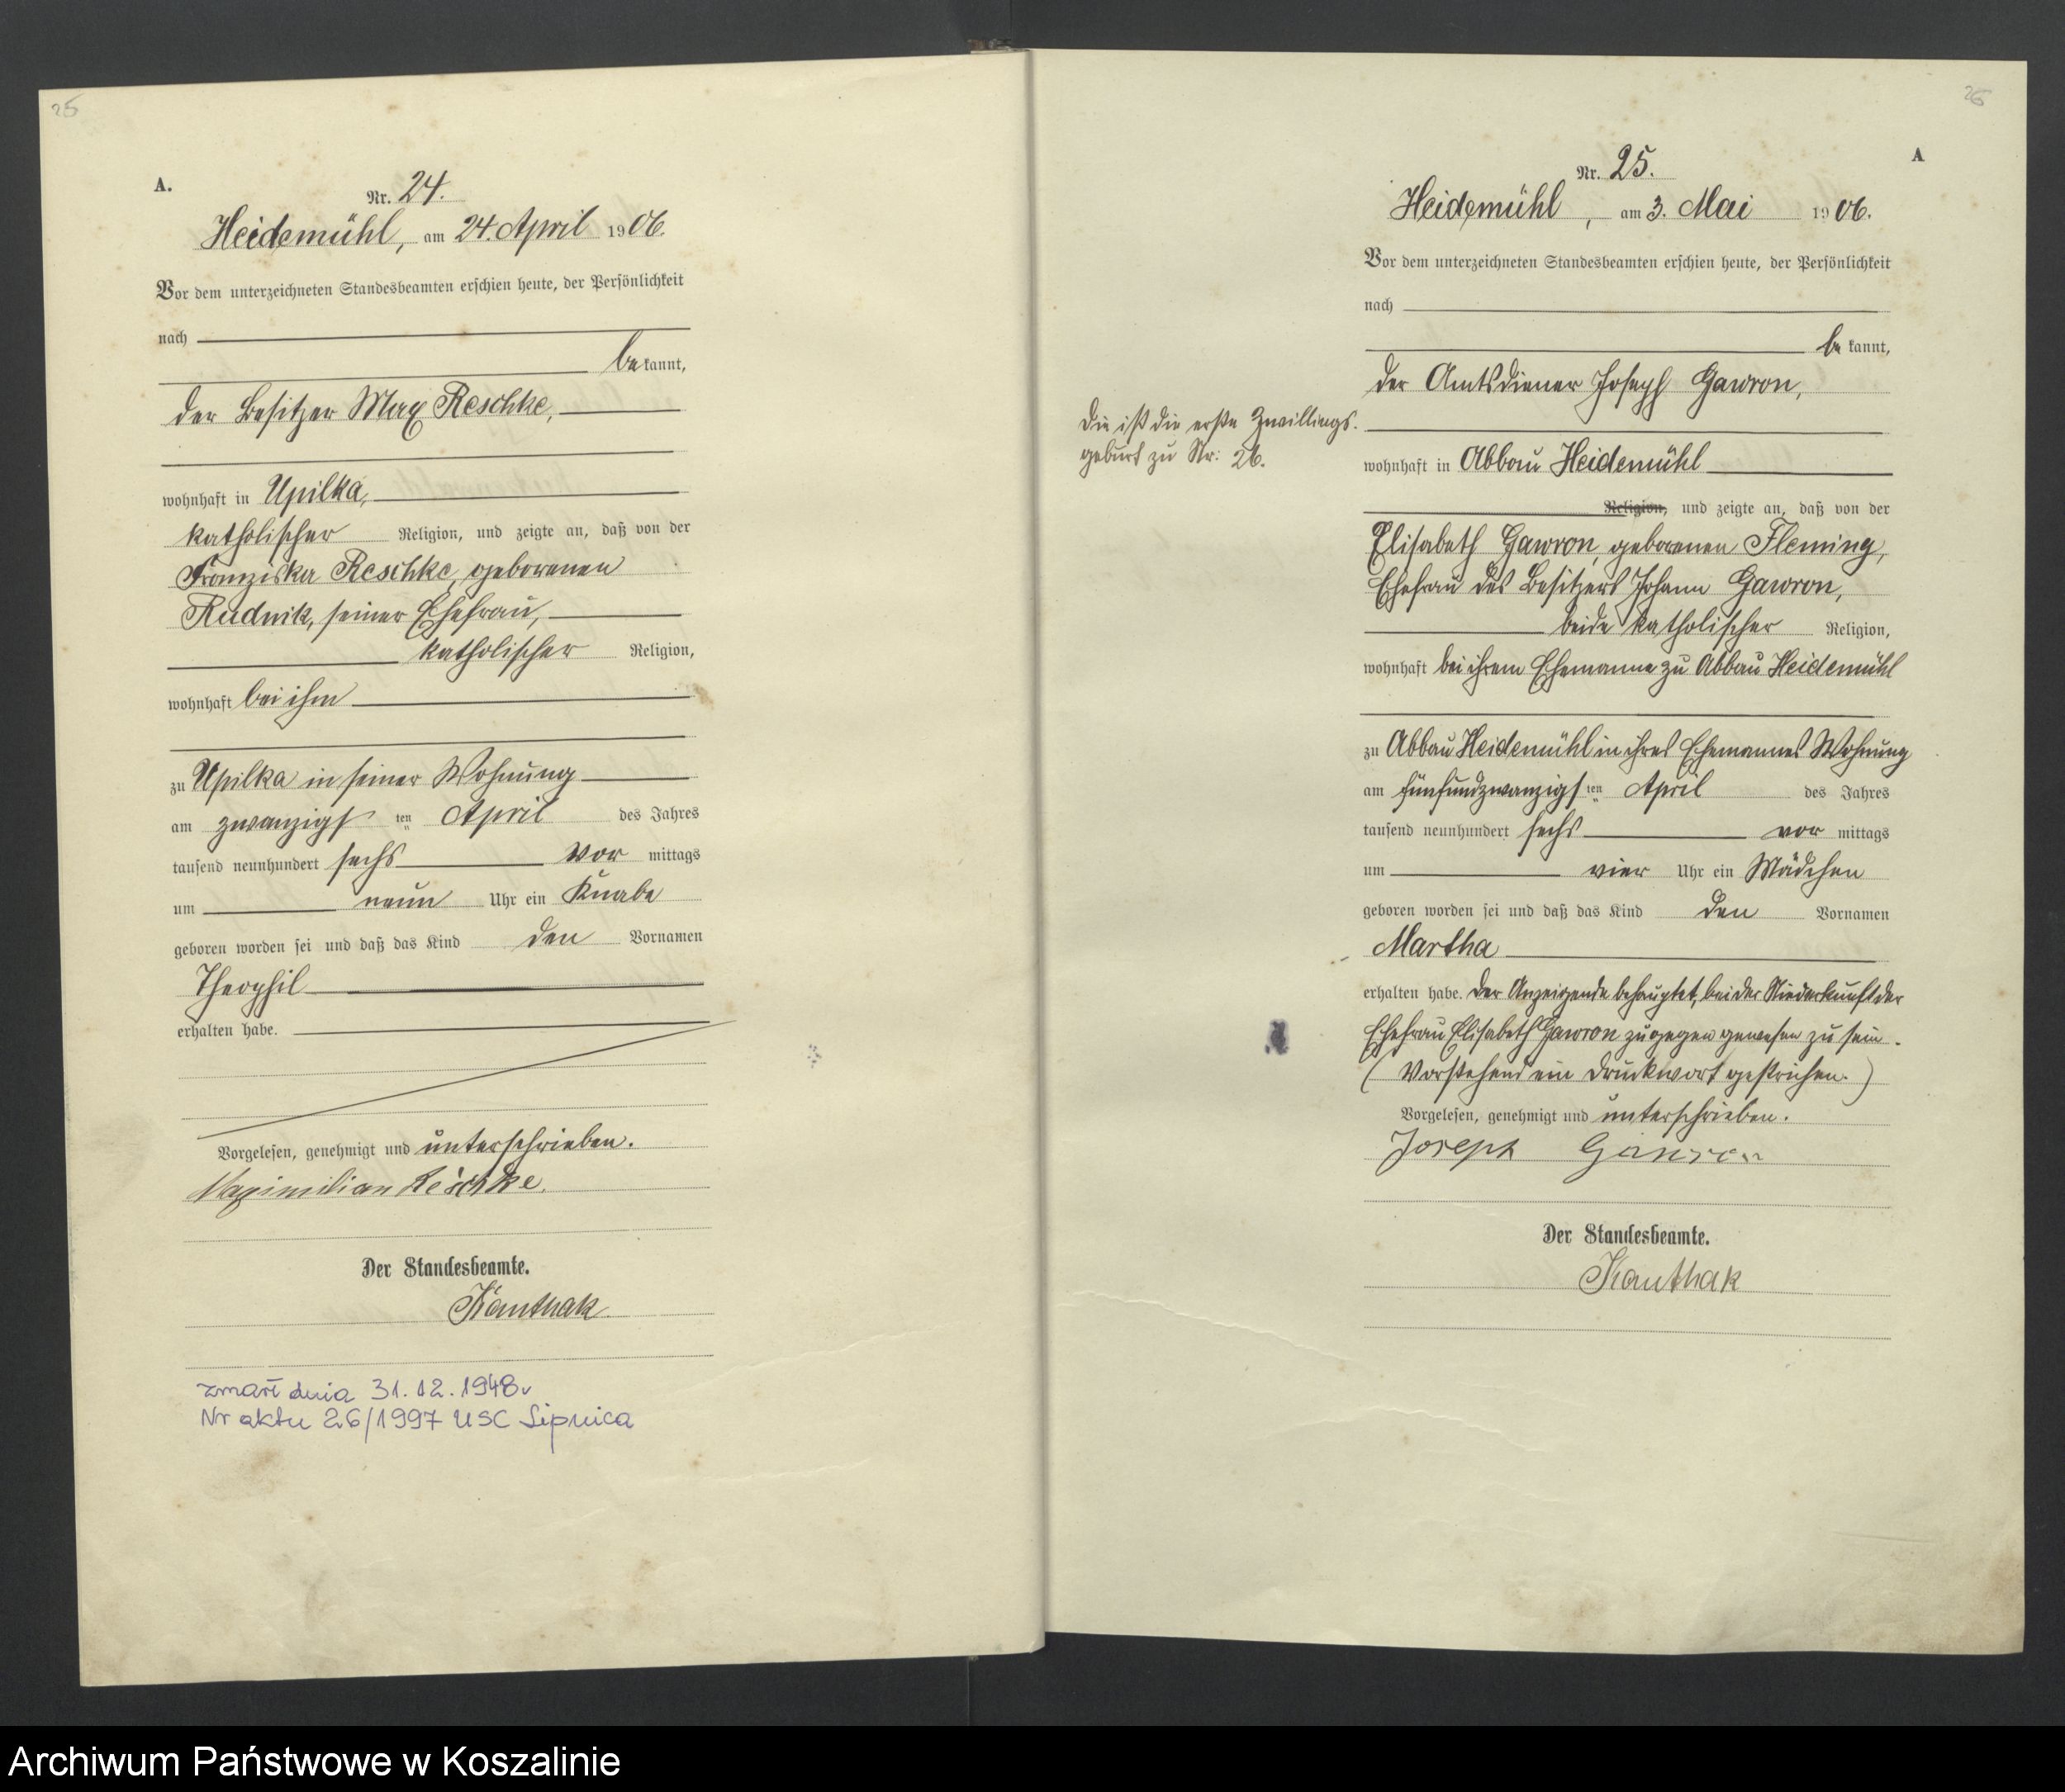 25
A.
Nr. 24.
Heidemühl, am 24. April 1906.
Vor dem unterzeichneten Standesbeamten erschien heute, der Persönlichkeit
nach
be kannt,
der Besitzer Max Reschke,
wohnhaft in Upilka,
katholischer Religion, und zeigte an, daß von der
Franziska Reschke, geborenen
Rudnik, seiner Ehefrau,
katholischer Religion,
wohnhaft bei ihm
zu Upilka in seiner Wohnung
am zwanzigsten April des Jahres
tausend neunhundert sechs Vor mittags
um neun Uhr ein Knabe
geboren worden sei und daß das Kind den Vornamen
Theophil
erhalten habe.
Vorgelesen, genehmigt und unterschrieben.
Maximilian Reschke.
Der Standesbeamte.
Kanthak
zmarł dnia 31.12.1948r
Nr aktu 26/1997 USC Lipnica
26
A
Nr. 25.
Heidemühl, am 3. Mai 1906.
Vor dem unterzeichneten Standesbeamten erschien heute, der Persönlichkeit
nach
be kannt,
der Amtsdiener Joseph Gawron,
Die ist die erste Zwillings-
geburt zu Nr: 26.
wohnhaft in Abbau Heidemühl
Religion, und zeigte an, daß von der
Elisabeth Gawron, geborenen Fleming,
Ehefrau des Besitzers Johann Gawron,
beide katholischer Religion,
wohnhaft bei ihrem Ehemanne zu Abbau Heidemühl
zu Abbau Heidemühl in ihres Ehemannes Wohnung
am fünfundzwanzigsten April des Jahres
tausend neunhundert sechs vor mittags
um vier Uhr ein Mädchen
geboren worden sei und daß das Kind den Vornamen
Martha
erhalten habe. Der Anzeigende behauptet, bei der Niederkunft der
Ehefrau Elisabeth Gawron zugegen gewesen zu sein.
(Vorstehend ein Druckwort gestrichen.)
Vorgelesen, genehmigt und unterschrieben.
Joseph Gawron
Der Standesbeamte.
Kanthak
Archiwum Państwowe w Koszalinie